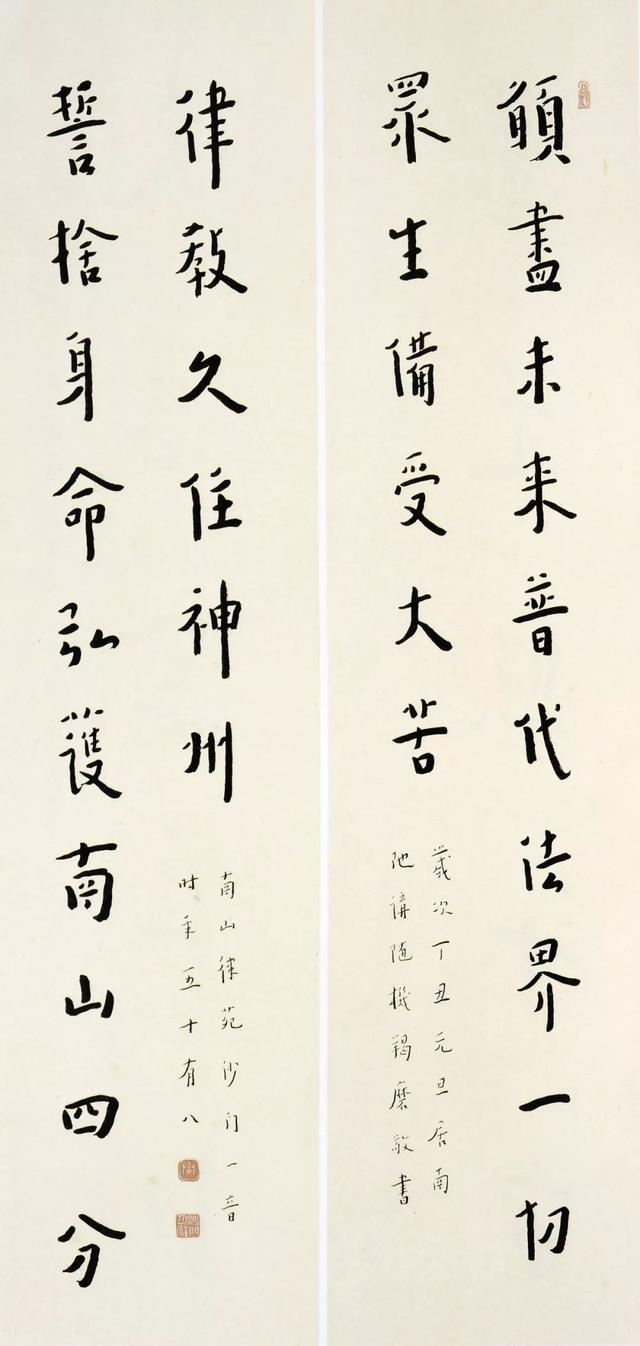 願盡未来普代法界一切
眾生備受大苦
歲次丁丑元旦居南
陀講随機羯磨敬書
誓捨身命弘護南山四分
律教久住神州
南山律苑沙门一音
时年五十有八